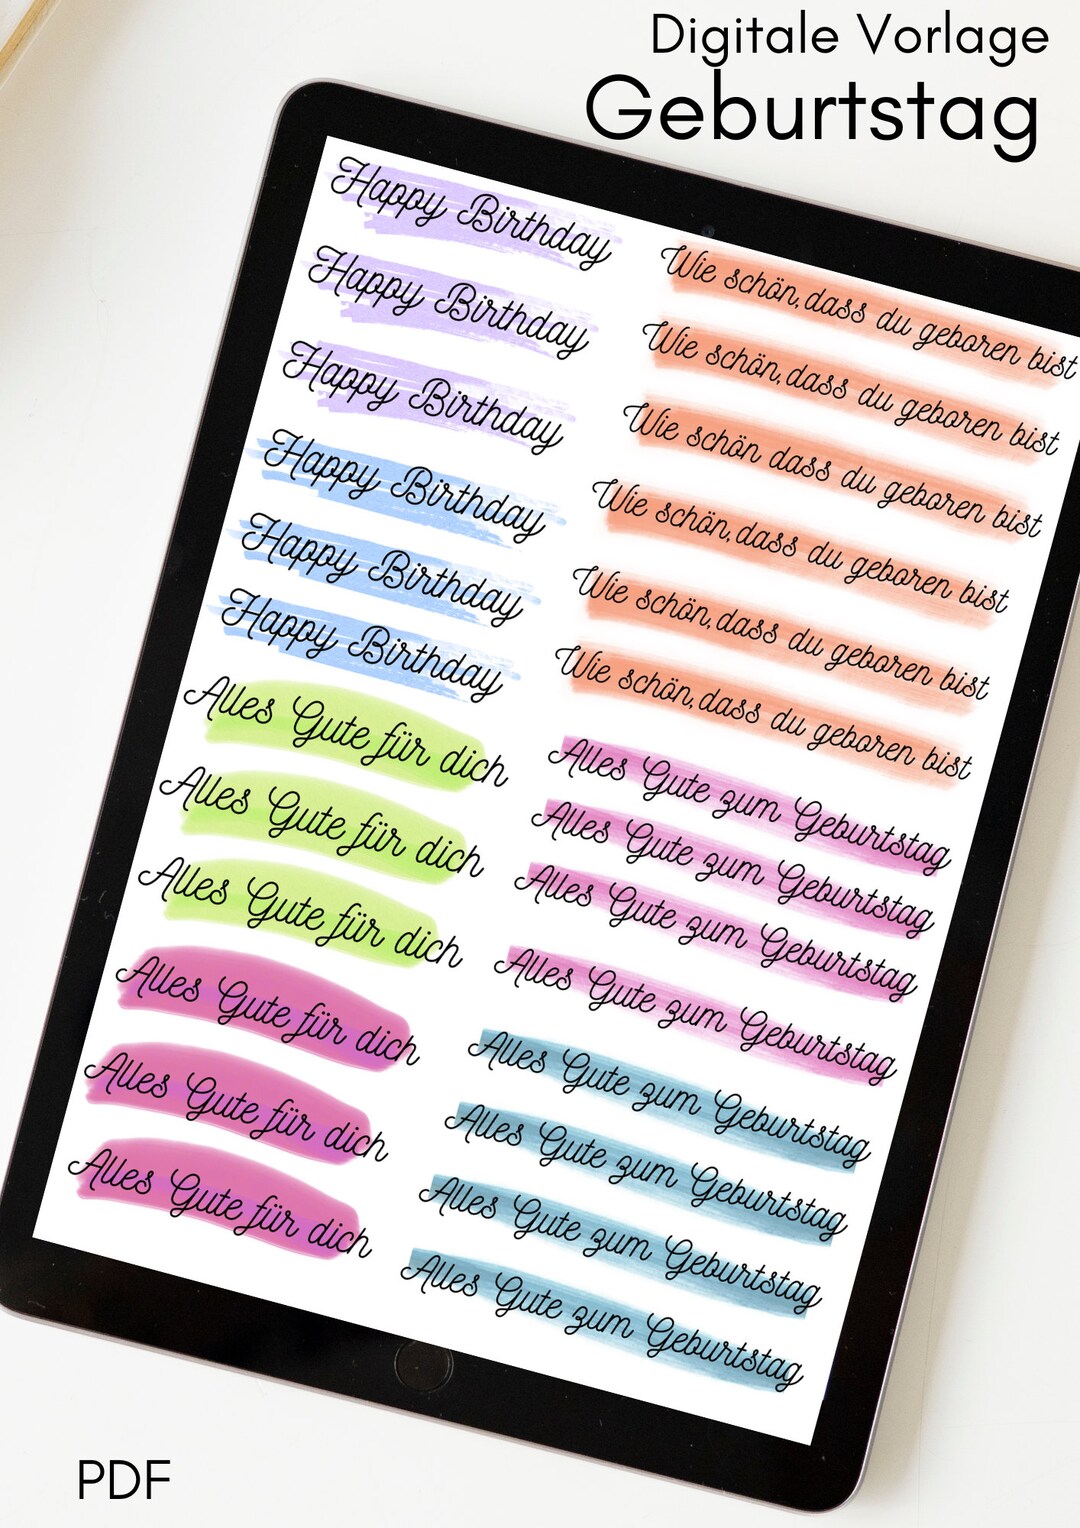 Digitale Vorlage
Geburtstag
Happy Birthday
Happy Birthday
Happy Birthday
Happy Birthday
Happy Birthday
Happy Birthday
Alles Gute für dich
Alles Gute für dich
Alles Gute für dich
Alles Gute für dich
Alles Gute für dich
Alles Gute für dich
Wie schön, dass du geboren bist
Wie schön, dass du geboren bist
Wie schön dass du geboren bist
Wie schön, dass du geboren bist
Wie schön, dass du geboren bist
Wie schön, dass du geboren bist
Alles Gute zum Geburtstag
Alles Gute zum Geburtstag
Alles Gute zum Geburtstag
Alles Gute zum Geburtstag
Alles Gute zum Geburtstag
Alles Gute zum Geburtstag
Alles Gute zum Geburtstag
Alles Gute zum Geburtstag
PDF